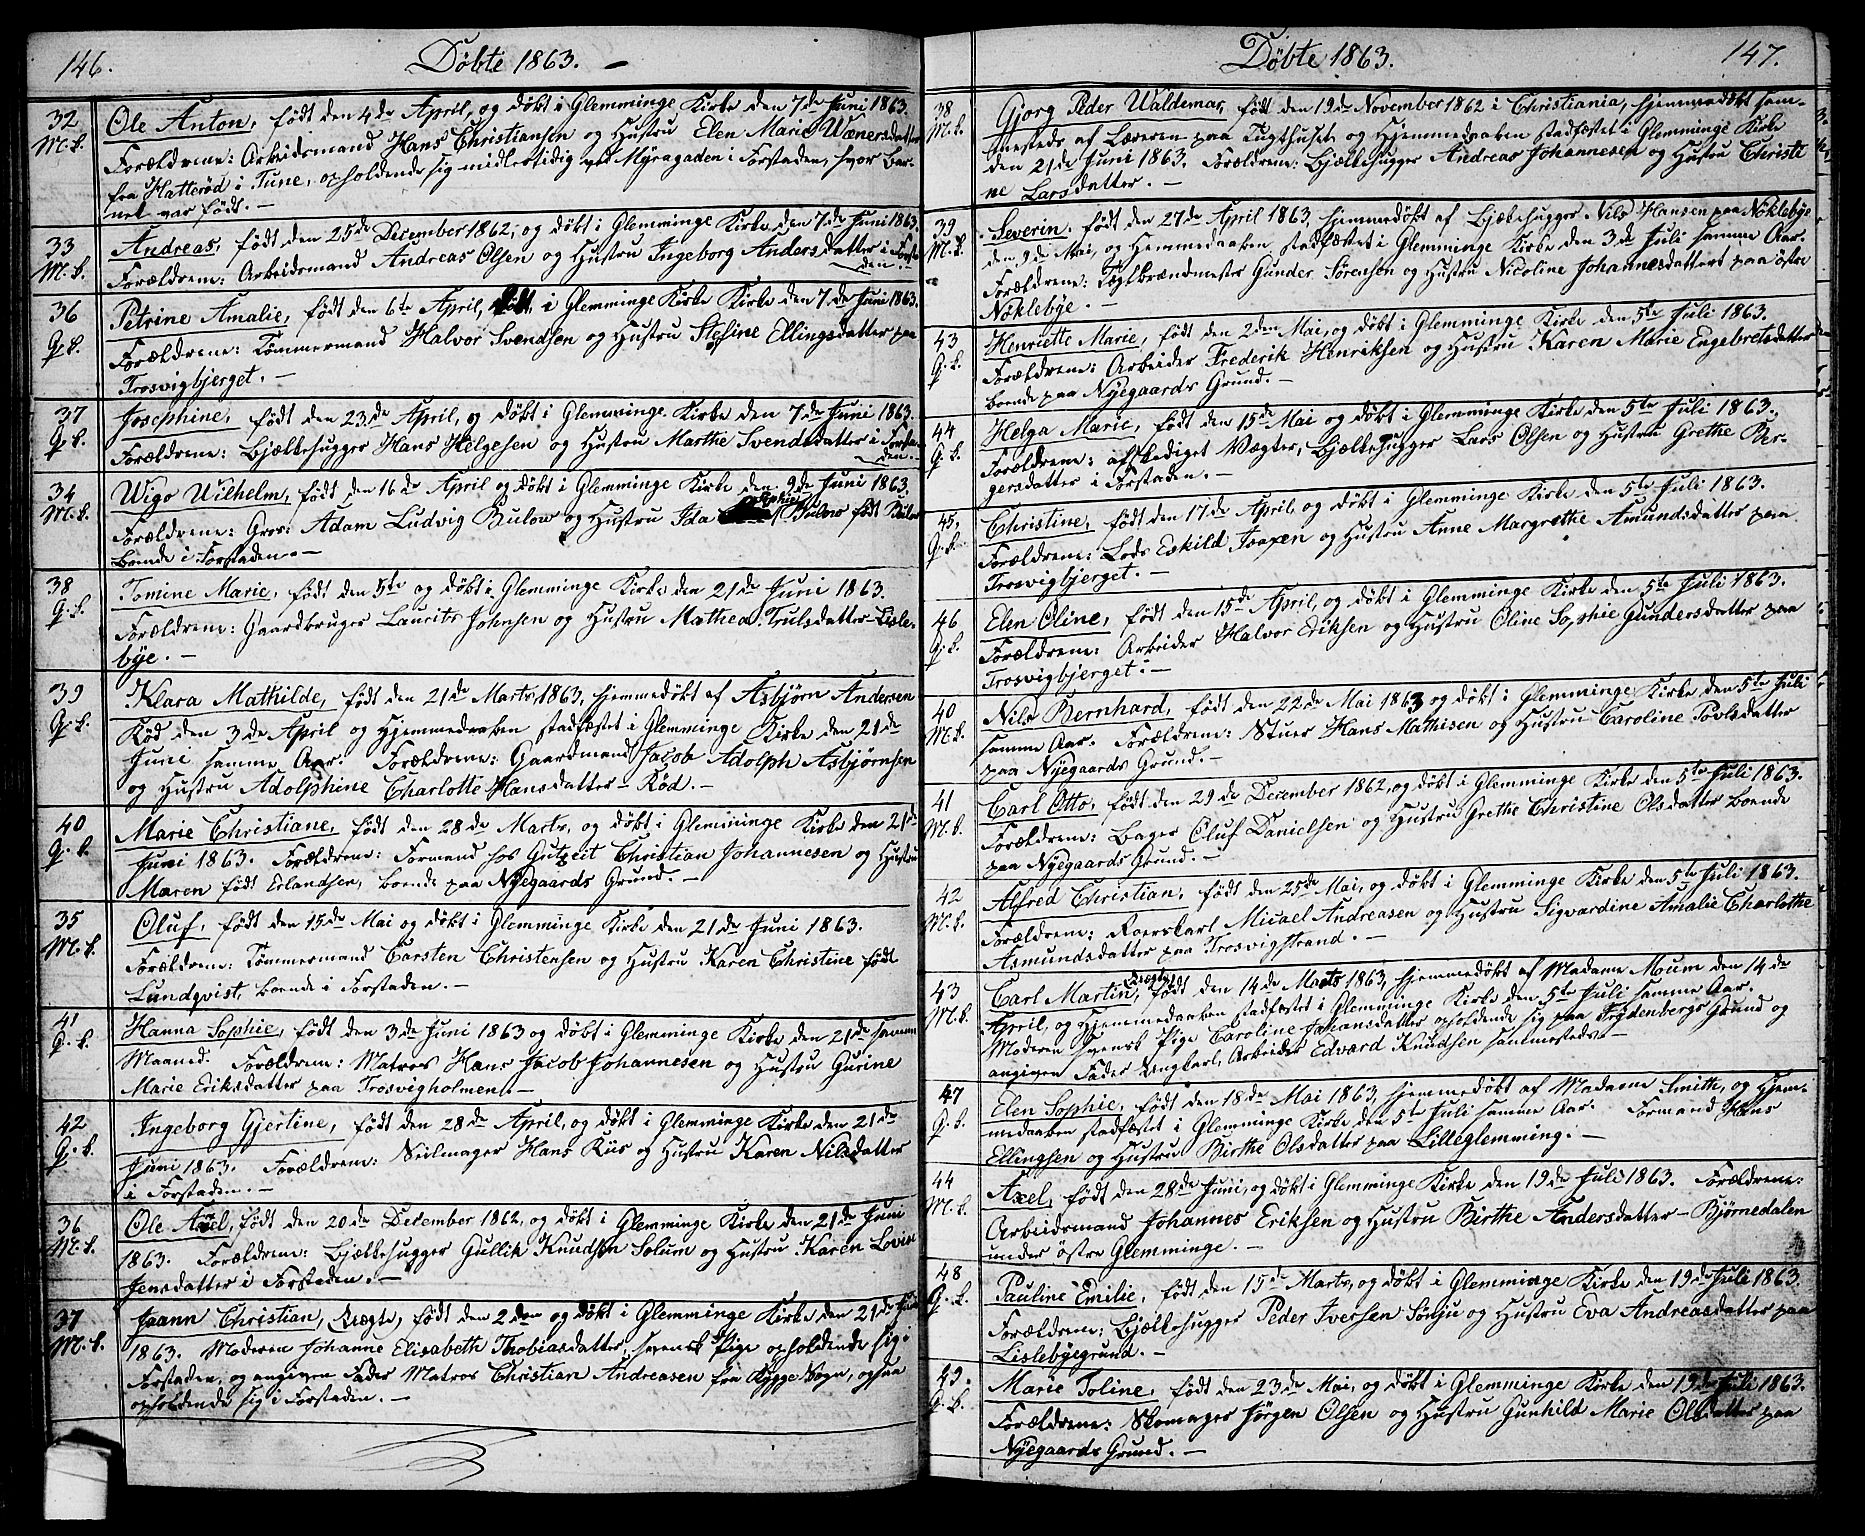 146.
Döbte 1863. –
32
M.k.
Ole Anton, født den 4de April, og døbt i Glemminge Kirke den 7de Juni 1863.
Forældrene: Arbeidsmand Hans Christiansen og Hustru Elen Marie Wænersdatter
fra Hatterød i Tune, opholdende sig midlertidig ved Myragaden i Forstaden, hvor Bar-
net var født. –
33
M.k.
Andreas, født den 25de December 1862, og døbt i Glemminge Kirke den 7de Juni 1863.
Forældrene: Arbeidsmand Andreas Olsen og Hustru Ingeborg Andersdatter i Forsta-
den. –
36
G.k.
Petrine Amalie, født den 6te April, døbt i Glemminge Kirke Kirke den 7de Juni 1863.
Forældrene: Tømmermand Halvor Svendsen og Hustru Stefine Ellingsdatter paa
Trosvigbjerget. –
37
G.k.
Josephine, født den 23de April, og døbt i Glemminge Kirke den 7de Juni 1863.
Forældrene: Bjælkehugger Hans Helgesen og Hustru Marthe Svendsdatter i Forsta-
den. –
34
M.k.
Wigo Wilhelm, født den 16de April og døbt i Glemminge Kirke den 9de Juni 1863.
Forældrene: Gros: Adam Ludvig Bulow og Hustru Ida Sophie Bulow født Bülow
boende i Forstaden. –
38
G.k.
Tomine Marie, født den 5te og døbt i Glemminge Kirke den 21de Juni 1863.
Forældrene: Gaardbruger Laurits Johnsen og Hustru Mathea Trulsdatter – Lisle-
bye. –
39
G.k.
Klara Mathilde, født den 21de Marts 1863, hjemmedøbt af Asbjørn Andersen
Röd den 3de April og Hjemmedaaben stadfæstet i Glemminge Kirke den 21de
Juni samme Aar. Forældrene: Gaardmand Jacob Adolph Asbjørnsen
og Hustru Adolphine Charlotte Hansdatter – Rød. –
40
G.k.
Marie Christiane, født den 28de Marts, og døbt i Glemminge Kirke den 21de
Juni 1863. Forældrene: Formand hos Gutzeit Christian Johannesen og Hustru
Maren født Erlandsen, boende paa Nyegaards Grund. –
35
M.k.
Oluf, født den 15de Mai og døbt i Glemminge Kirke den 21de Juni 1863.
Forældrene: Tømmermand Carsten Christensen og Hustru Karen Christine født
Lundqvist, boende i Forstaden. –
41
G.k.
Hanna Sophie, født den 3de Juni 1863 og døbt i Glemminge Kirke den 21de samme
Maaned. Forældrene: Matros Hans Jacob Johannesen og Hustru Gurine
Marie Eriksdatter paa Trosvigholmen. –
42
G.k.
Ingeborg Gjertine, født den 28de April, og døbt i Glemminge Kirke den 21de
Juni 1863. Forældrene: Seilmager Hans Riis og Hustru Karen Nilsdatter
i Forstaden. –
36
M.k.
Ole Axel, født den 20de December 1862, og døbt i Glemminge Kirke den 21de Juni
1863. Forældrene: Bjælkehugger Gullik Knudsen Solum og Hustru Karen Lovise
Jensdatter i Forstaden. –
37
M.k.
Joann Christian, Uægte, født den 2den og døbt i Glemminge Kirke den 21de Juni
1863. Moderen Johanne Elisabeth Thobiasdatter, svensk Pige opholdende sig i
Forstaden, og angiven Fader Matros Christian Andreasen fra Rygge Sogn, ogsaa
opholdende sig i Forstaden. –
Döbte 1863.
147.
38
M.k.
Gjorg Peder Waldemar, født den 19de November 1862 i Christiania, hjemmedøbt sam-
mesteds af Læreren paa Tugthuset og Hjemmedaaben stadfæstet i Glemminge Kirke
den 21de Juni 1863. Forældrene: Bjælkehugger Andreas Johannesen og Hustru Christi
ne Larsdatter. –
39
M.k.
Severin, født den 27de April 1863, hjemmedøbt af Bjælkehugger Nils Hansen paa Nøklebye
den 9de Mai, og Hjemmedaaben stadfæstet i Glemminge Kirke den 3de Juli samme Aar.
Forældrene: Teglbrændmester Gunder Sørensen og Hustru Nicoline Johannesdatter paa østre
Nöklebye. –
43
G.k.
Henriette Marie, født den 2den Mai, og døbt i Glemminge Kirke den 5te Juli 1863.
Forældrene: Arbeider Frederik Henriksen og Hustru Karen Marie Engebretsdatter
boende paa Nyegaards Grund. –
44
G.k.
Helga Marie, født den 15de Mai og døbt i Glemminge Kirke den 5te Juli 1863.
Forældrene: afskediget Vægter, Bjælkehugger Lars Olsen og Hustru Grethe Ber-
gersdatter i Forstaden. –
45.
G.k.
Christine, født den 17de April, og døbt i Glemminge Kirke den 5te Juli 1863.
Forældrene: Lods Eskild Isaksen og Hustru Anne Margrethe Amundsdatter paa
Trosvigbjerget. –
46
G.k.
Elen Oline, født den 15de April, og døbt i Glemminge Kirke den 5te Juli 1863.
Forældrene: Arbeider Halvor Eriksen og Hustru Oline Sophie Gundersdatter paa
Trosvigbjerget. –
40
M.k.
Nils Bernhard, født den 22de Mai 1863 og døbt i Glemminge Kirke den 5te Juli
samme Aar. Forældrene: Stuer Hans Mathisen og Hustru Caroline Povlsdatter
paa Nyegaards Grund. –
41
M.k.
Carl Otto, født den 29de December 1862, og døbt i Glemminge Kirke den 5te Juli 1863.
Forældrene: Bager Oluf Danielsen og Hustru Grethe Christine Olsdatter boende
paa Nyegaards Grund. –
42
M.k.
Alfred Christian, født den 25de Mai, og døbt i Glemminge Kirke den 5te Juli 1863.
Forældrene: Roerskarl Micael Andreasen og Hustru Sigvardine Amalie Charlotte
Asmundsdatter paa Trosvigstrand. –
43
M.k.
Carl Martin, Uægte, født den 14de Marts 1863, hjemmedøbt af Madame Moum den 14de
April, og Hjemmedaaben stadfæstet i Glemminge Kirke den 5te Juli samme Aar.
Moderen svensk Pige Caroline Johansdatter opholdende sig paa Frydenbergs Grund og
angiven Fader Ungkarl, Arbeider Edvard Knudsen sammesteds. –
47
G.k.
Elen Sophie, født den 18de Mai 1863, hjemmedøbt af Madame Smitth, og Hjem-
medaaben stadfæstet i Glemminge Kirke den 5te Juli samme Aar. Formand Hans
Ellingsen og Hustru Birthe Olsdatter paa Lilleglemming. –
44
M.k.
Axel, født den 28de Juni, og døbt i Glemminge Kirke den 19de Juli 1863. Forældrene:
Arbeidsmand Johannes Eriksen og Hustru Birthe Andersdatter – Bjørnedalen
under østre Glemminge. –
48
G.k.
Pauline Emilie, født den 15de Marts, og døbt i Glemminge Kirke den 19de Juli 1863.
Forældrene: Bjælkehugger Peder Iversen Sönju og Hustru Eva Andreasdatter paa
Lislebyegrund. –
49.
G.k.
Marie Toline, født den 23de Mai, og døbt i Glemminge Kirke den 19de Juli 1863.
Forældrene: Skomager Jørgen Olsen og Hustru Gunhild Marie Olsdatter paa
Nyegaards Grund. –